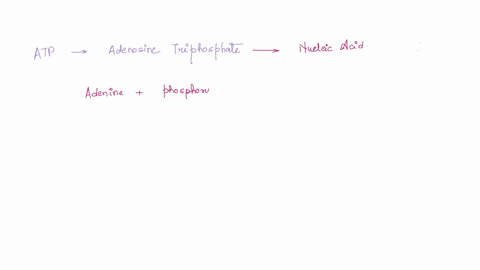 ATP → Adenosine Triphosphate → Nucleic Acid
Adenine + phosphor